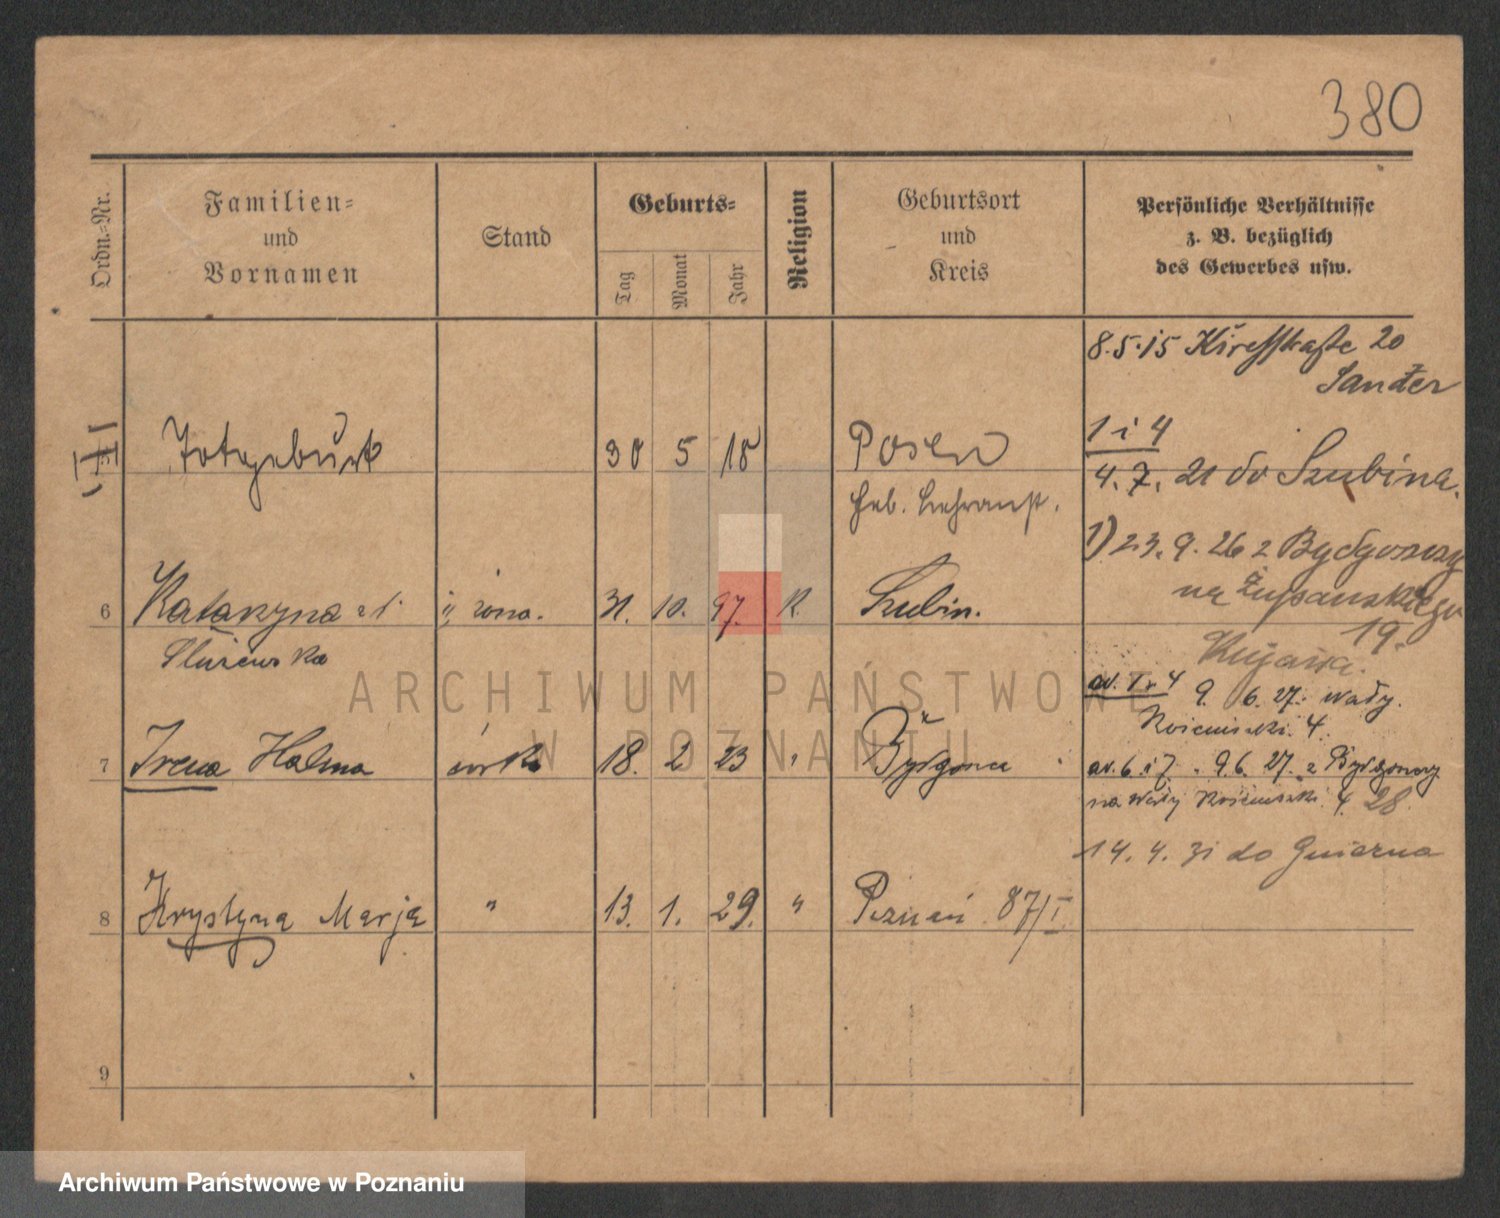 380
Ordn.-Nr.
Familien-
und
Vornamen
Stand
Geburts-
Tag
Monat
Jahr
Religion
Geburtsort
und
Kreis
Persönliche Verhältnisse
z. B. bezüglich
des Gewerbes usw.
8.5.15 20
Sander
Totgeburt 30 5 18 Posen
1 i 4
4. 7. 21 do Szubina.
Geb. Lehranst.
1) 23. 9. 26 z Bydgoszczy
na Żupańskiego
19.
6 Katarzyna żona. 31. 10. 97. K. Szubin.
Służewska
9. 6. 27. Wały
Kościuszki 4.
7 Irena Halina córka 18. 2 23 " Bydgoszcz
6 i 7 9.6. 27. z Bydgoszczy
na Wały Kościuszki 4. 28.
14. 4. 31 do Gniezna
8 Krystyna Marja " 13. 1. 29. " Poznań 87/I
9
ARCHIWUM PAŃSTWOWE
W POZNANIU
Archiwum Państwowe w Poznaniu